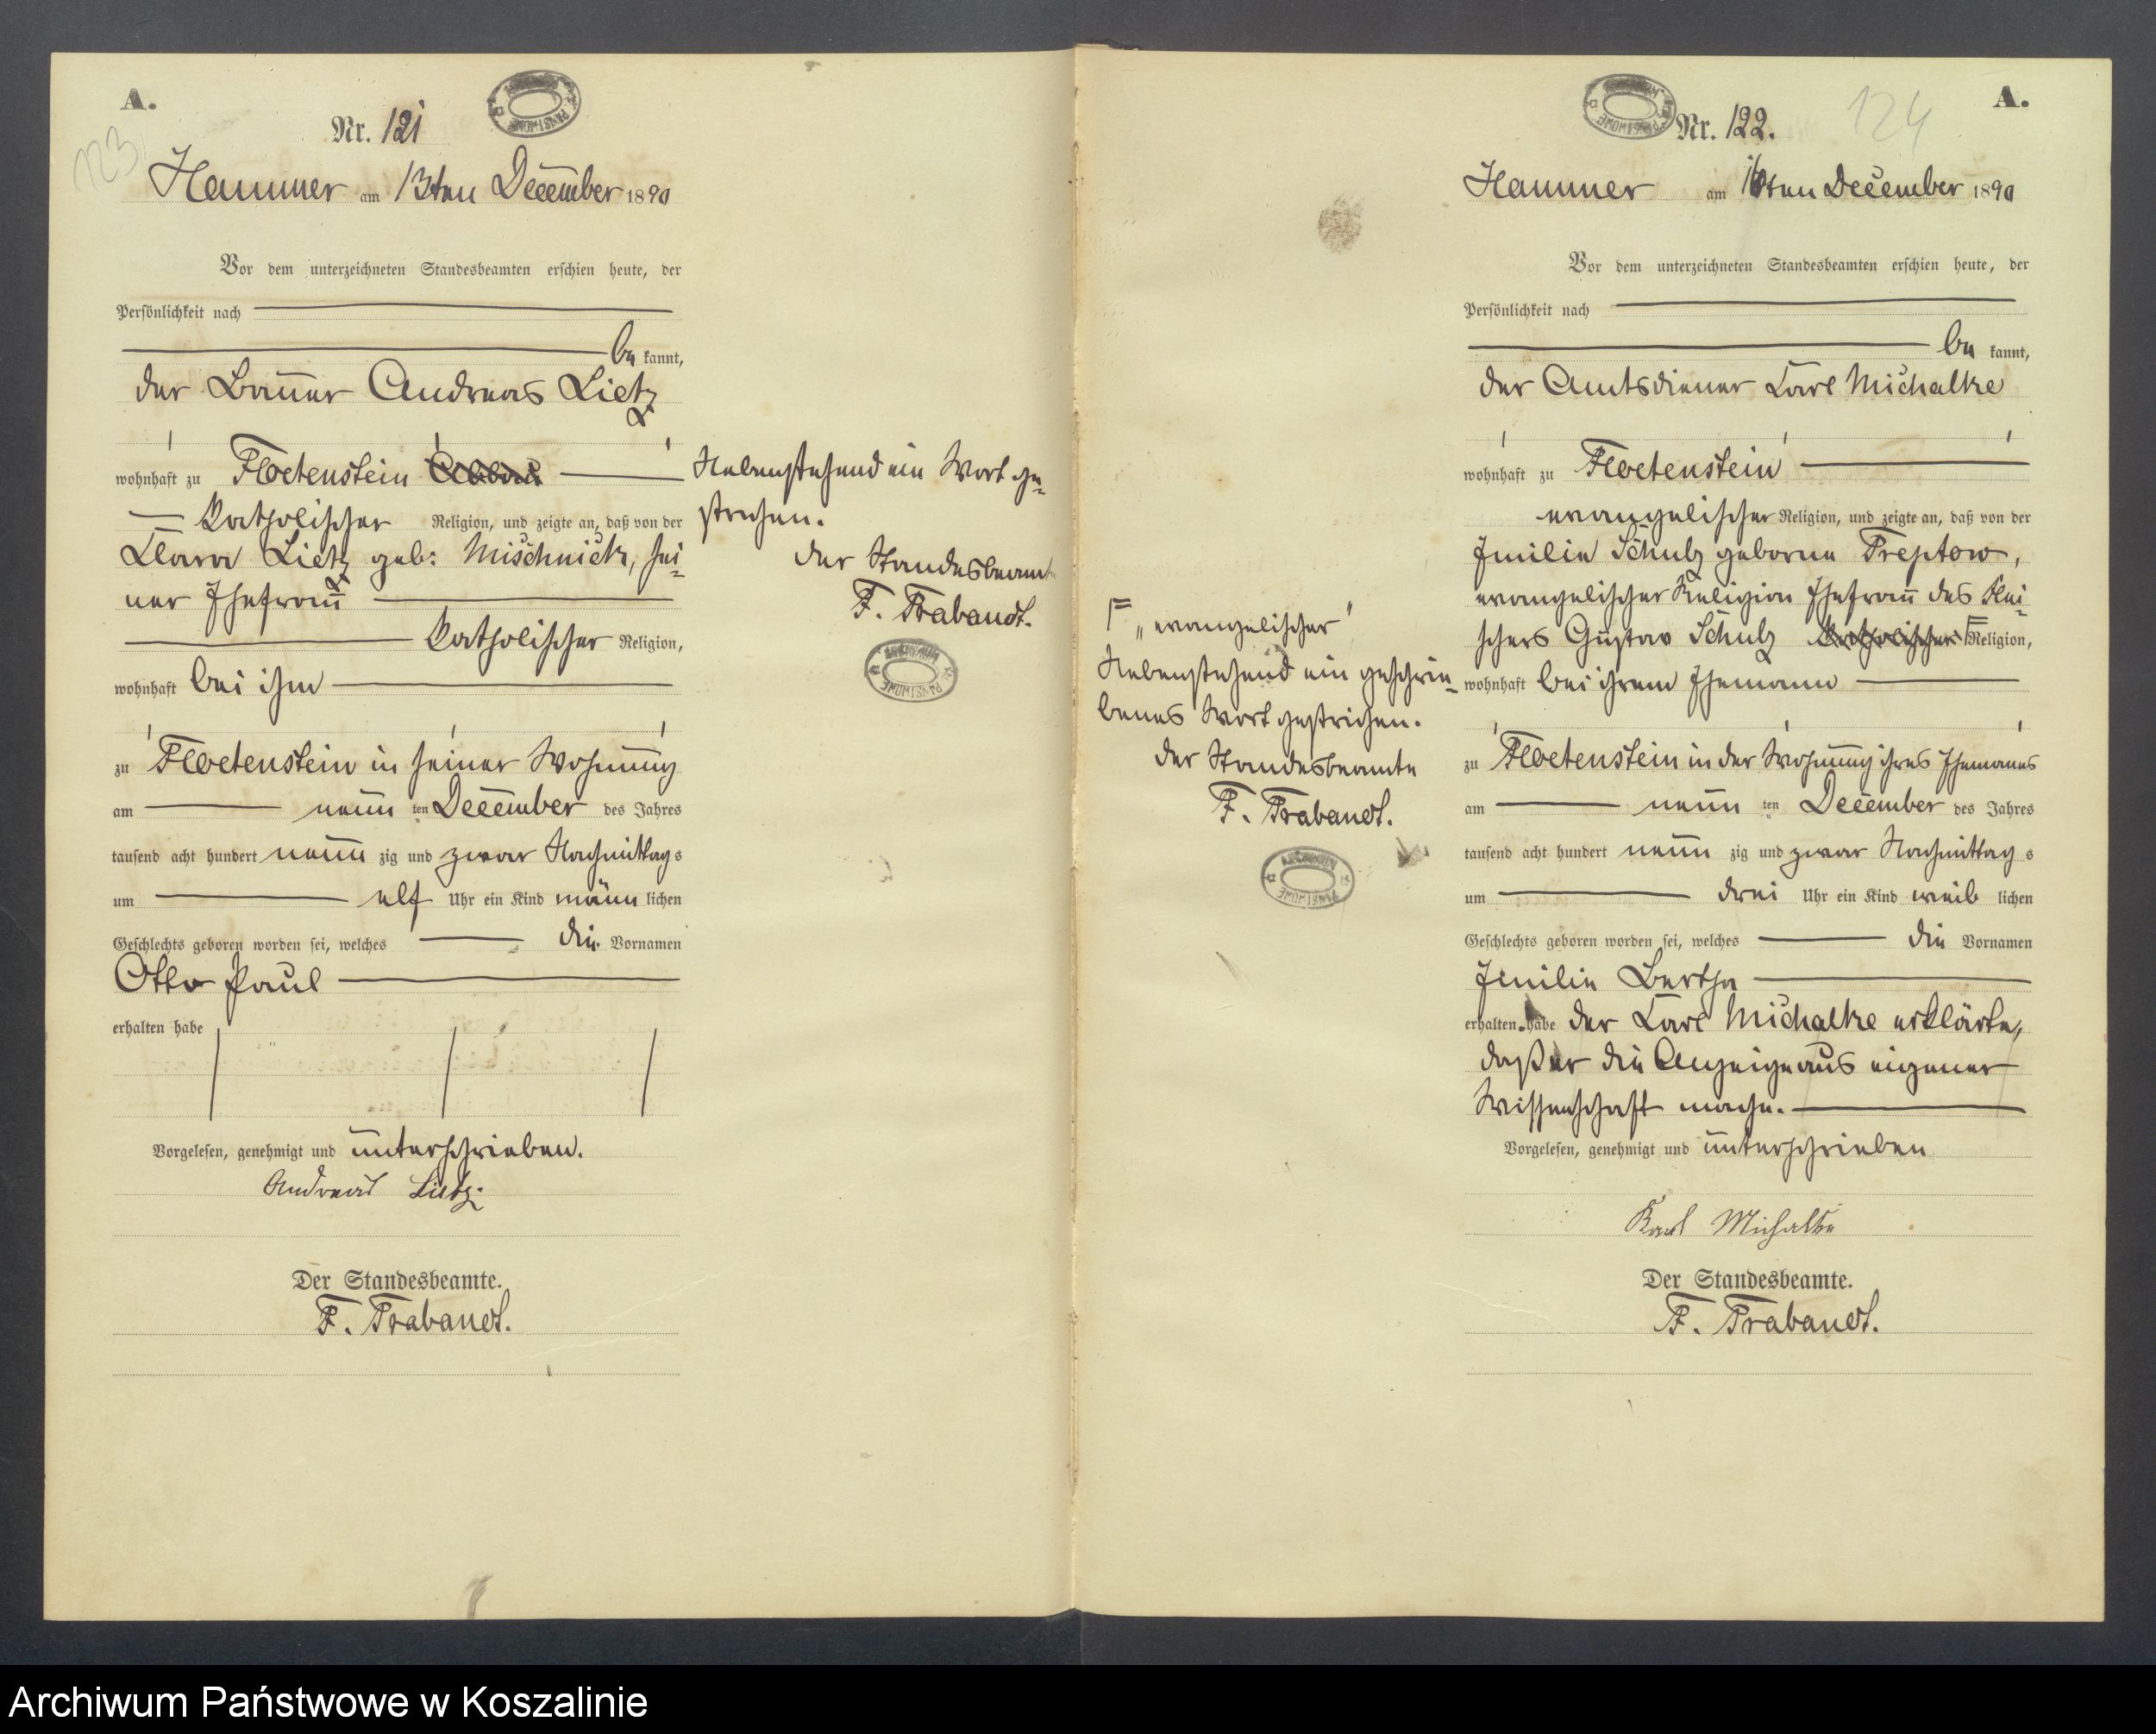 A.
123
Nr. 121
Hammer am 13ten December 1890
Vor dem unterzeichneten Standesbeamten erschien heute, der
Persönlichkeit nach
be kannt,
der Bauer Andreas Lietz
wohnhaft zu Floetenstein
katholischer Religion, und zeigte an, daß von der
Clara Lietz geb: Mischnick, sei-
ner Ehefrau
katholischer Religion,
wohnhaft bei ihm
zu Floetenstein in seiner Wohnung
am neun ten December des Jahres
tausend acht hundert neun zig und zwar Nachmittag s
um elf Uhr ein Kind männ lichen
Geschlechts geboren worden sei, welches die Vornamen
Otto Paul
erhalten habe
Vorgelesen, genehmigt und unterschrieben.
Andreas Lietz.
Der Standesbeamte.
F. Trabandt.
Nebenstehend ein Wort ge-
strichen.
Der Standesbeamte
F. Trabandt.
A.
124
Nr. 122.
Hammer am ten December 1890
Vor dem unterzeichneten Standesbeamten erschien heute, der
Persönlichkeit nach
be kannt,
der Amtsdiener Carl Michalke
wohnhaft zu Floetenstein
evangelischer Religion, und zeigte an, daß von der
Emilie Schulz geborne Treptow,
evangelischer Religion Ehefrau des Flei-
schers Gustav Schulz katholischer Religion,
wohnhaft bei ihrem Ehemann
zu Floetenstein in der Wohnung ihres Ehemanns
am neun ten December des Jahres
tausend acht hundert neun zig und zwar Nachmittag s
um drei Uhr ein Kind weib lichen
Geschlechts geboren worden sei, welches die Vornamen
Emilie Bertha
erhalten habe der Carl Michalke erklärte,
daß er die Anzeige aus eigener
Wissenschaft mache.
Vorgelesen, genehmigt und unterschrieben
Karl Michalke
Der Standesbeamte.
F. Trabandt.
„evangelischer"
Nebenstehend ein geschrie-
benes Wort gestrichen.
Der Standesbeamte
F. Trabandt.
Archiwum Państwowe w Koszalinie